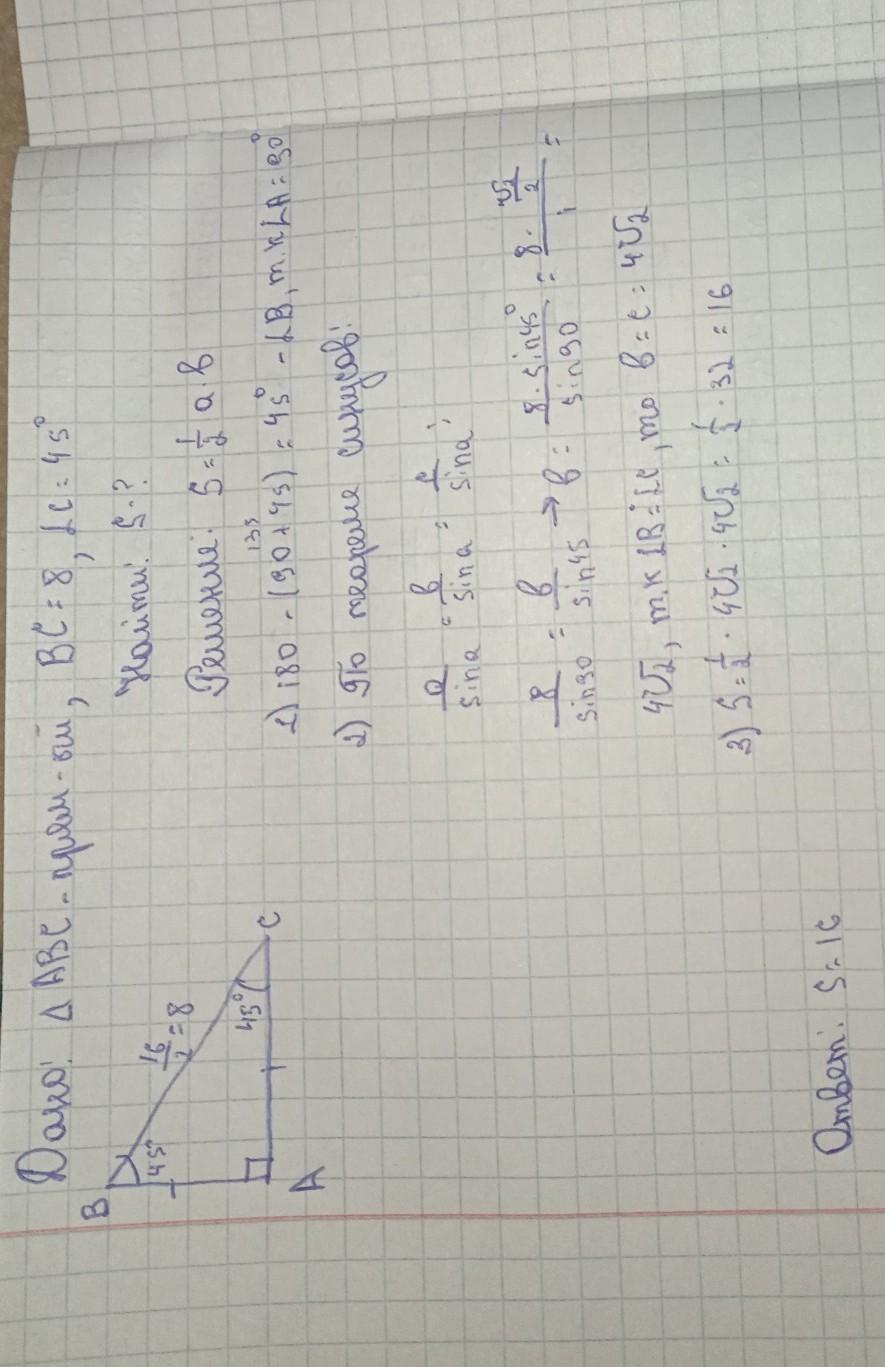 Дано: Δ ABC - прям-ый, BC = 8, ∠C = 45°
Найти: S - ?
Решение: S = 1/2 a · b
135
1) 180 - (90 + 45) = 45° - ∠B, т.к ∠A = 90°
2) По теореме синусов:
a/sina = b/sina = c/sina;
8/sin90 = b/sin45 → b = 8 · sin45°/sin90 = 8 · √2/2 / 1 =
4√2, т.к ∠B = ∠C, то b = c = 4√2
3) S = 1/2 · 4√2 · 4√2 = 1/2 · 32 = 16
B
45°
16/2 = 8
45°
C
A
Ответ: S = 16